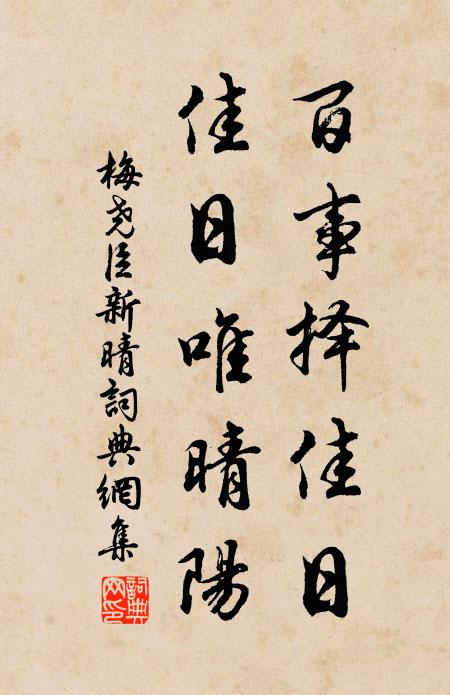 百事择佳日
佳日唯晴陽
梅尧臣新晴詞典網集
詞典网印